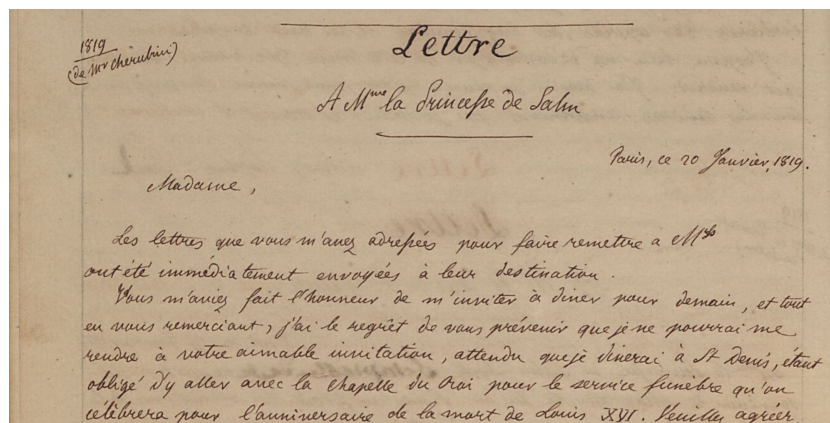 Lettre
1819
(de Mr Cherubini)
A Mme la Princesse de Salm
Paris, ce 20 Janvier, 1819.
Madame,
Les lettres que vous m'avez adressées pour faire remettre a
ont été immédiatement envoyées à leur destination.
Vous m'aviez fait l'honneur de m'inviter à diner pour demain, et tout
en vous remerciant, j'ai le regrêt de vous prévenir que je ne pourrai me
rendre à votre aimable invitation, attendu que je dinerai à St Denis, étant
obligé d'y aller avec la chapelle du Roi pour le service funèbre qu'on
célèbrera pour l'anniversaire de la mort de Louis XVI. Veuillez agréer